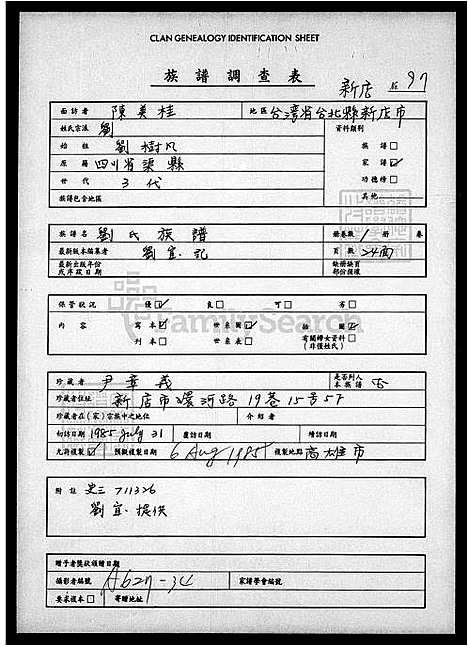 CLAN GENEALOGY IDENTIFICATION SHEET
族譜調查表
新店 97
面訪者 陳美桂 地區 台灣省台北縣新店市
姓氏宗派 劉 資料類別
始祖 劉樹凡 族譜□
原籍 四川省渠縣 家譜☑
世代 3代 功德榜□
族譜包含地區 其他
族譜名 劉氏族譜 冊卷數 1 冊 卷
最新版本編纂者 劉宜記 頁數 24面
最新出版年份或序跋日期 缺冊缺頁部份推樣
保管狀況 優☑ 良□ 可□ 劣□
內容 寫本☑ 世系圖☑ 插圖☑
刊本□ 世系表□ 有關婦女資料□
(非僅姓氏)
FamilySearch
珍藏者 尹章義 是否列入本族譜 否
珍藏者住址 新店市環河路19巷15号5F
珍藏者在(家)宗族中之地位 介紹者
初訪日期 1985 July 31 覆訪日期 續訪日期
允許複製☑ 預擬複製日期 6 Aug 1985 複製地點 高雄市
附註 史三 711326
劉宜提供
贈予者獎狀頒贈日期
攝影者編號 A627-34 家譜學會編號
要求複本□ 寄贈地址